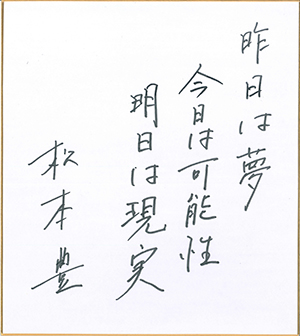 昨日は夢
今日は可能性
明日は現実
松本豊